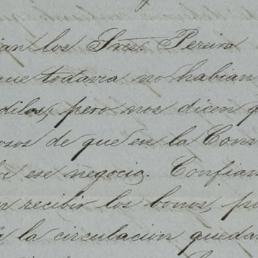 ian los Sres. Pereira
que todavia no habian
dilos, pero nos dicen q
osos de que en la Cons
ese negocio. Confian
n recibir los bonos, p
la circulacion queda